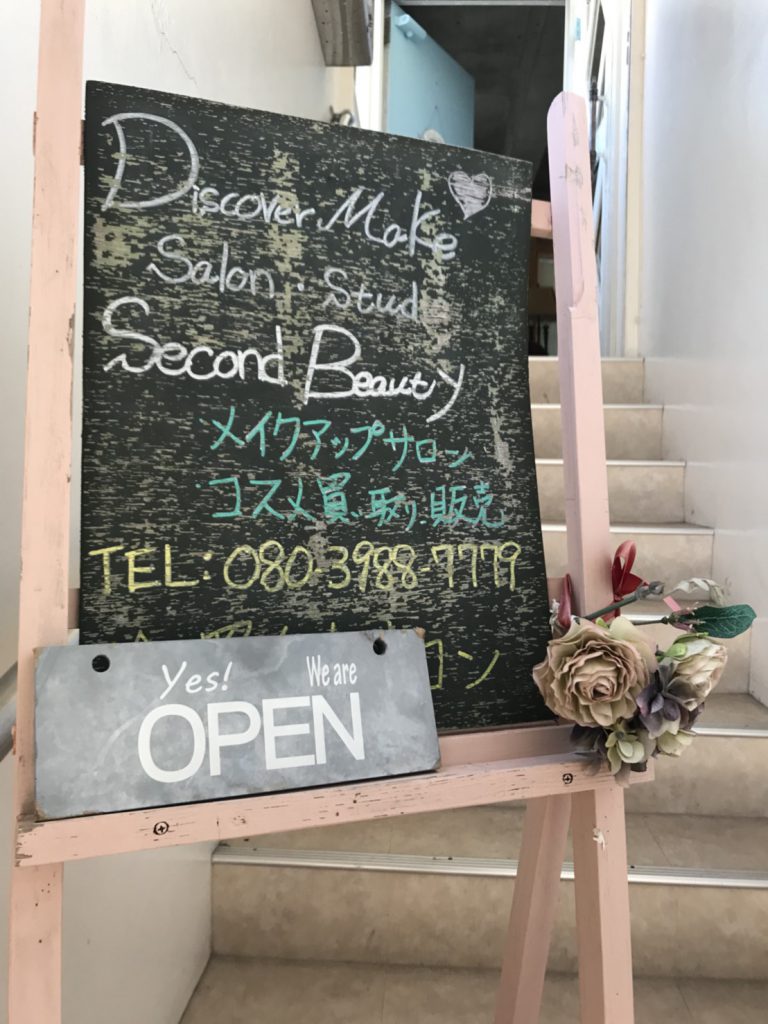 Discover Make
Salon・Stud
Second Beauty
メイクアップサロン
コスメ買い取り、販売
TEL: 080-3988-7779
ロン
Yes! We are
OPEN